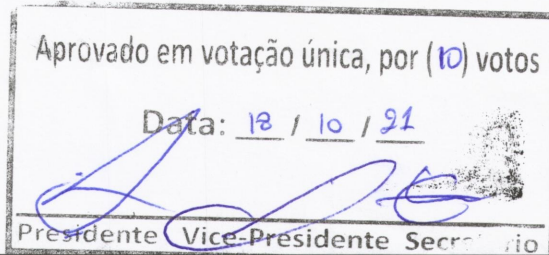 Aprovado em votação única, por (10) votos
Data: 18 / 10 / 21
Presidente Vice-Presidente